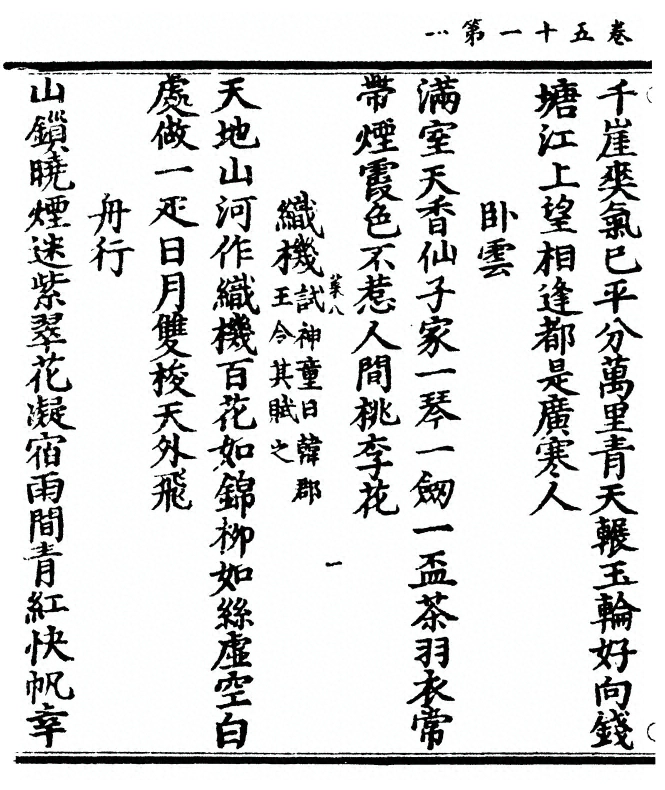 卷五十一第一
千崖爽氣已平分萬里青天輾玉輪好向錢
塘江上望相逢都是廣寒人
卧雲
滿室天香仙子家一琴一劒一盃茶羽衣常
帶煙霞色不惹人間桃李花
葉八
織機試神童日韓郡
王令其賦之
天地山河作織機百花如錦柳如絲虛空白
處做一疋日月雙梭天外飛
舟行
山鎖曉煙迷紫翠花凝宿雨間青紅快帆幸